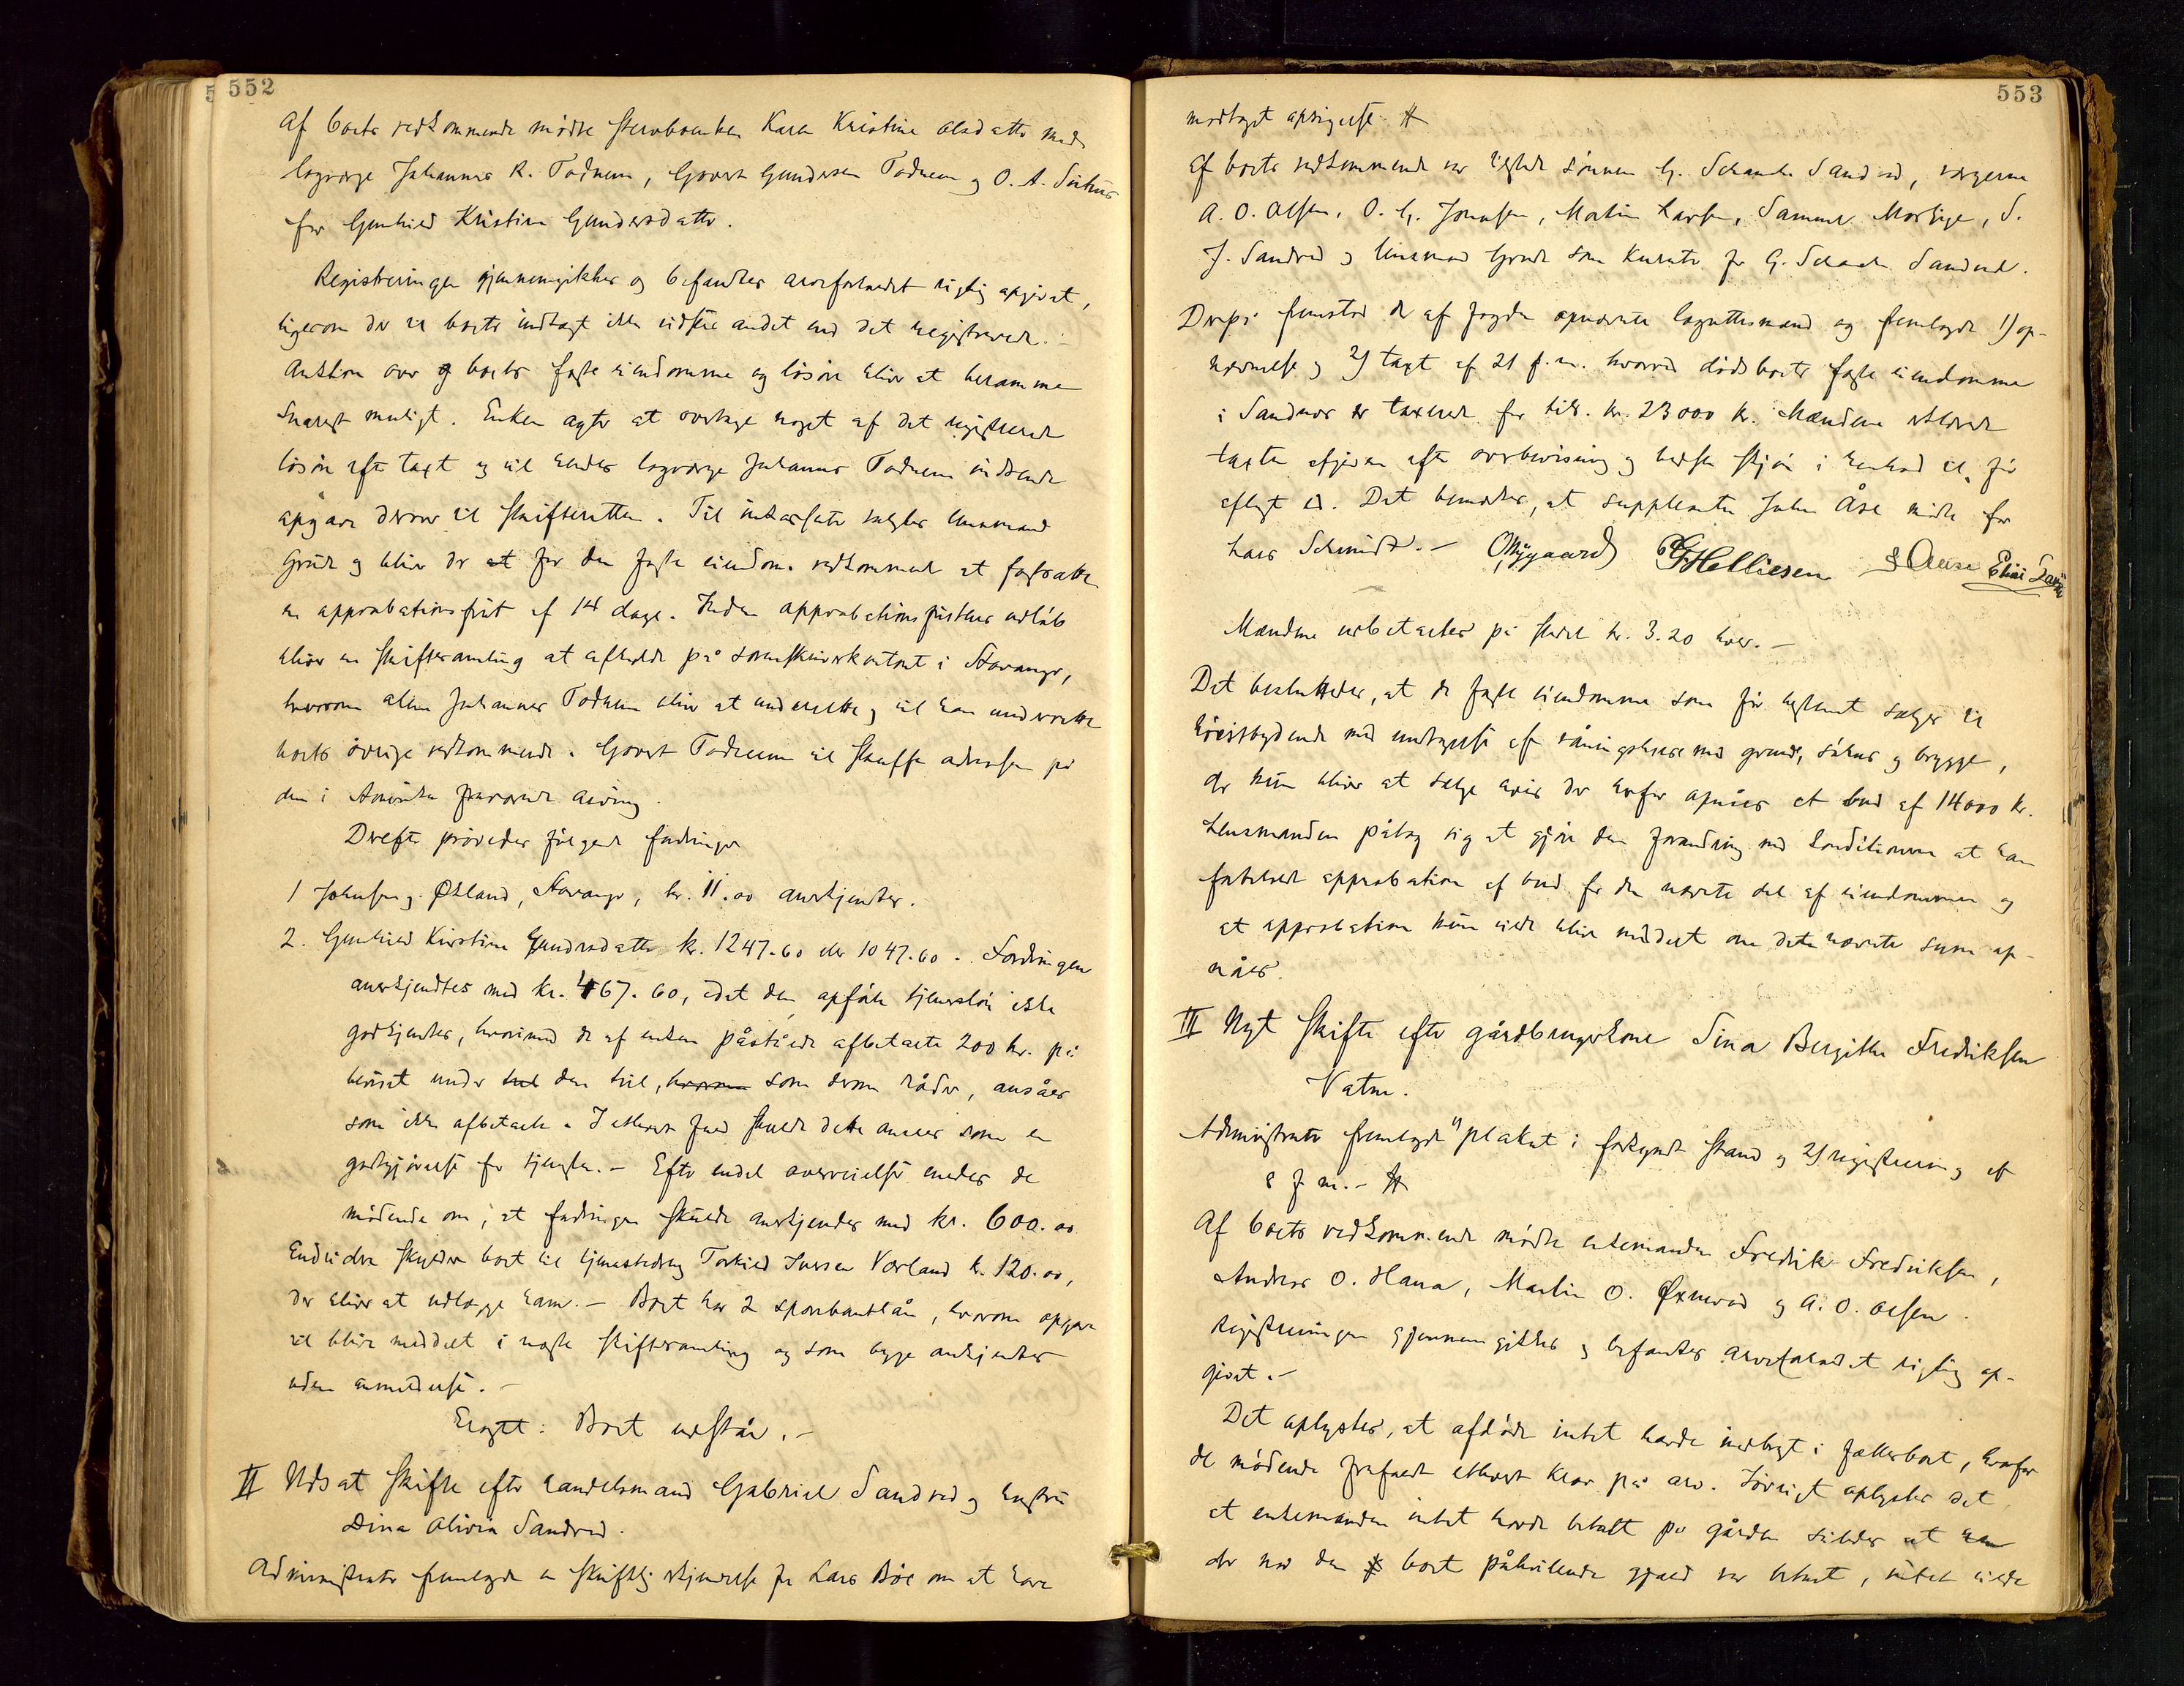 552
Af boets vedkommende mødte stervboenken Karen Kristine Olsdatter med
lagværge Johannes R. Todnem, Govert Gundersen Todnem og O. A.
for Gunhild Kristine Gundersdatter.
Registreringen gjennemgikkes og befandtes arveforholdet rigtig opgivet,
ligesom der til boets indtægt ikke vidstes andet end det registrerede.
Auktion over boets faste eiendomme og løsøre bliver at beramme
snarest muligt. Enken agter at overtage noget af det registrerede
løsøre efter taxt og vil hendes lagværge Johannes Todnem indsende
opgave derover til skifteretten. Til inkassator valgtes lensmand
Grude og bliver der for den faste eiendoms vedkommende at fastsætte
en approbationsfrist af 14 dage. Inden approbationsfristens udløb
bliver en skiftesamling at afholde på sorenskriverkontoret i Stavanger,
hvorom alene Johannes Todnem bliver at underrette og vil han underrette
boets øvrige vedkommende. Govert Todnem vil skaffe adressen på
den i Amerika fraværende arving.
Derefter prøvedes følgende fordringer
1 Johnsen & Østland, Stavanger, kr. 11.00 anerkjendtes.
2. Gunhild Kirstine Gundersdatter kr. 1247.60 eller 1047.60 . Fordringen
anerkjendtes med kr. 467.60, idet den opførte tjenerløn ikke
godkjendtes, hvorimod de af enken påståede afbetalte 200 kr. på
beviset under den tvil, som derom råder, ansåes
som ikke afbetalte. I ethvert fald skulde dette ansees som en
godtgjørelse for tjenesten. – Efter endel overveielse enedes de
mødende om, at fordringen skulde anerkjendes med kr. 600.00
Endvidere skylder boet til tjenestedreng Torkild Iversen Varland kr. 120.00,
der bliver at udlægge ham. – Boet har 2 sparebanklån, hvorom opgave
vil blive meddelt i næste skiftesamling og som begge anerkjendtes
uden anmeldelse. –
Eragtet: Boet udstår. –
II Udsat skifte efter handelsmand Gabriel Sandved og hustru
Dina Olivia Sandved.
Administrator fremlagde en skriftlig erkjendelse fra Lars Bøe om at have
553
modtaget opsigelse #
Af boets vedkommende var tilstede sønnen G. Schancke Sandved, værgerne
A. O. Olsen, O. G. Johnsen, Martin Larsen, Samuel , S.
J. Sandved og lensmand Grude som kurator for G. Schancke Sandved.
Derpå fremstod de af fogden opnævnte lagrettesmænd og fremlagde 1) op-
nævnelse og 2) taxt af 21 f.m. hvorved dødsboets faste eiendomme
i Sandnæs er taxeret for tils. kr. 23000 kr. Mændene erklærede
taxten afgiven efter overbevisning og bedste skjøn i henhold til før
aflagt ed. Det bemærkes, at supplenten John Åse mødte for
Lars Schmidt. – GHelliesen JAase
Mændene udbetaltes på stedet kr. 3.20 hver. –
Det besluttedes, at de faste eiendomme som før bestemt sælges til
høistbydende med undtagelse af våningshuset med grund, søhus og brygge,
der kun bliver at sælge hvis der herfor opnåes et bud af 14000 kr.
Lensmanden påtog sig at gjøre den forandring ved konditionerne at han
forbeholdt approbation af bud for den nævnte del af eiendommen og
at approbation kun vilde blive meddelt om det nævnte sum op-
nåes.
III Nyt skifte efter gårdbrugerkone Sina Bergitte Fredriksen
Vatne.
Administrator fremlagde 1) plakat i forkyndt stand og 2) registrering af
8 f.m. – #
Af boets vedkommende mødte enkemanden Fredrik Fredriksen,
Andreas O. Hana, Martin O. Øxnevad og A. O. Olsen.
Registreringen gjennemgikkes og befandtes arveforholdet rigtig op-
givet. –
Det oplystes, at afdøde intet havde indbragt i fællesboet, hvorfor
de mødende frafaldt ethvert krav på arv. Iøvrigt oplystes det
at enkemanden intet havde betalt på gården således at han
der når den boet påhvilende gjæld var betalt, intet vilde